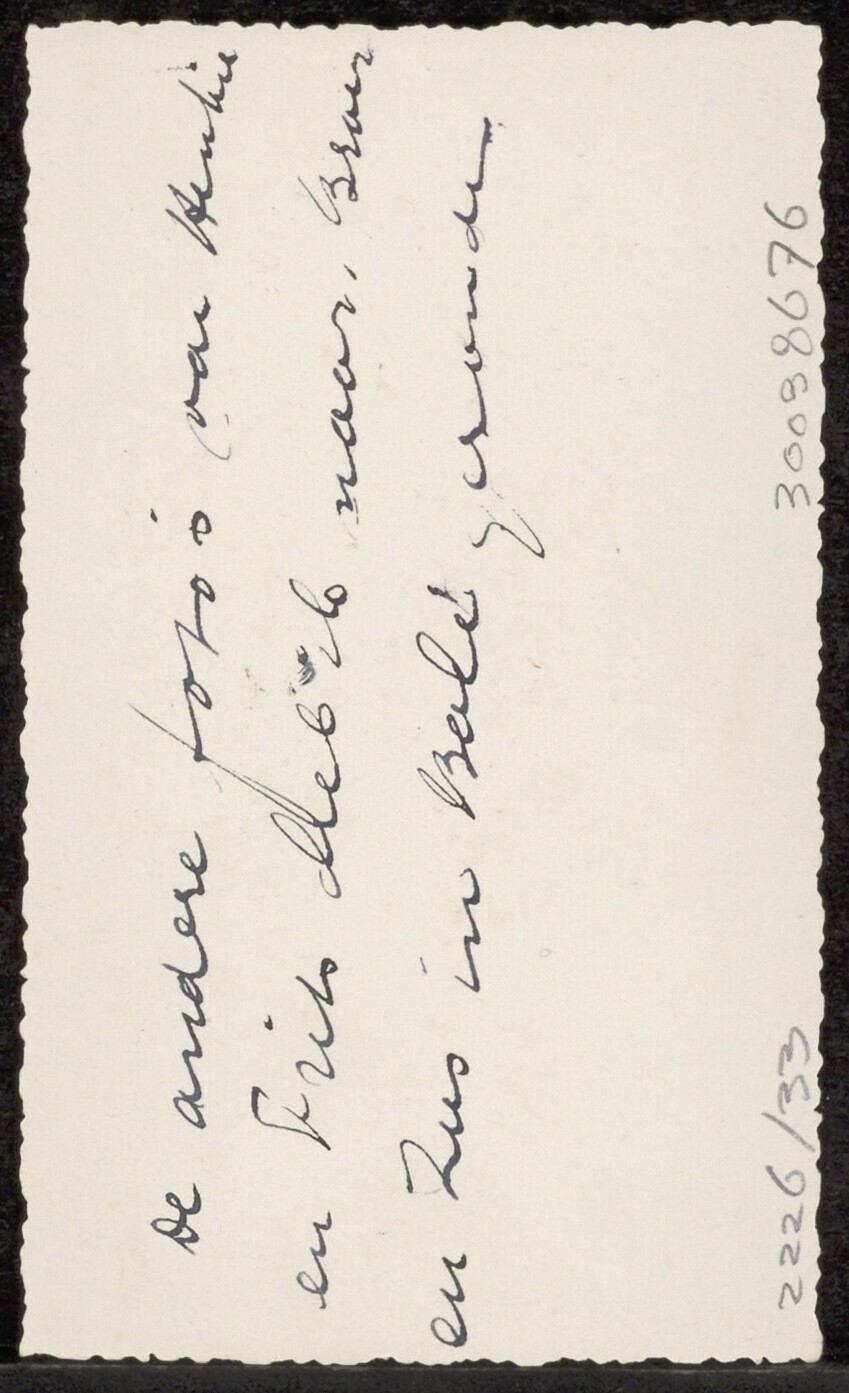 De andere foto's van Henkie
en Frits heb ik naar Broer
en Zus in Bali gezonden
2226/33 30098676